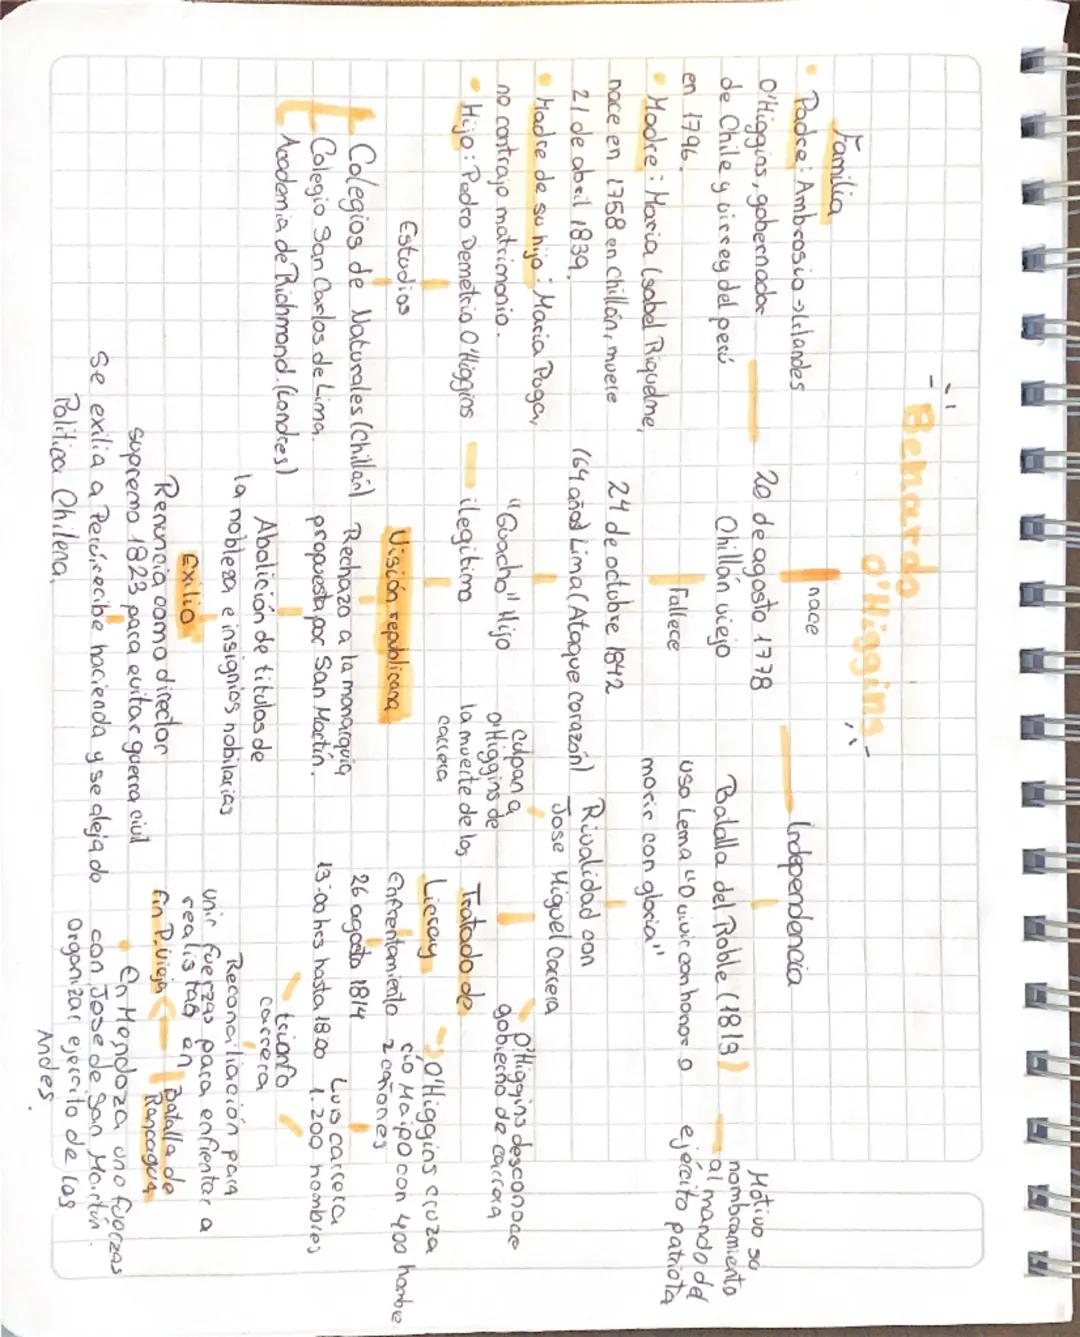 Bernardo
O'Higgins
Familia
• Padre: Ambrosio → Irlandes
O'Higgins, gobernador
de Chile y virrey del perú
en 1796.
• Madre: Maria Isabel Riquelme,
nace en 1758 en chillán, muere
21 de abril 1839.
• Madre de su hijo: Maria Puga,
no contrajo matrimonio.
• Hijo: Pedro Demetrio O'Higgins
Estudios
Colegios de Naturales (Chillán)
Colegio San Carlos de Lima.
Academia de Richmond. (Londres)
nace
20 de agosto 1778
Chillán viejo
Fallece
24 de octubre 1842
(64 años Lima (Ataque corazón)
"Guacho" Hijo
ilegitimo
Visión republicana
Rechazo a la monarquia
propuesta por San Martín.
Abolición de titulos de
la nobleza e insignias nobilarias
Exilio
Renuncia como director
supremo 1823 para evitar guerra civil
Se exilia a Perú, recibe hacienda y se aleja do
Politica Chilena.
Independencia
Batalla del Roble (1813)
uso Lema "O vivir con honor o
morir con gloria"
Motivo su
nombramiento
al mando del
ejército patriota
Rivalidad con
Jose Miguel Carrera
culpan a
O'Higgins de
la muerte de los
carrera
O'Higgins desconoce
gobierno de carrera
Tratado de
Lircay
Enfrentamiento
26 agosto 1814
13:00 hrs hasta 18:00
→ O'Higgins cruza
río Maipo con 400 hombre
2 cañones
Luis carrera
1.200 hombres
triunfo
carrera
Reconciliación para
unir fuerzas para enfrentar a
realistas en Batalla de
Rancagua
fin P. Vieja ←
• En Mendoza uno fuerzas
con Jose de San Martín.
Organizar ejercito de los
Andes.